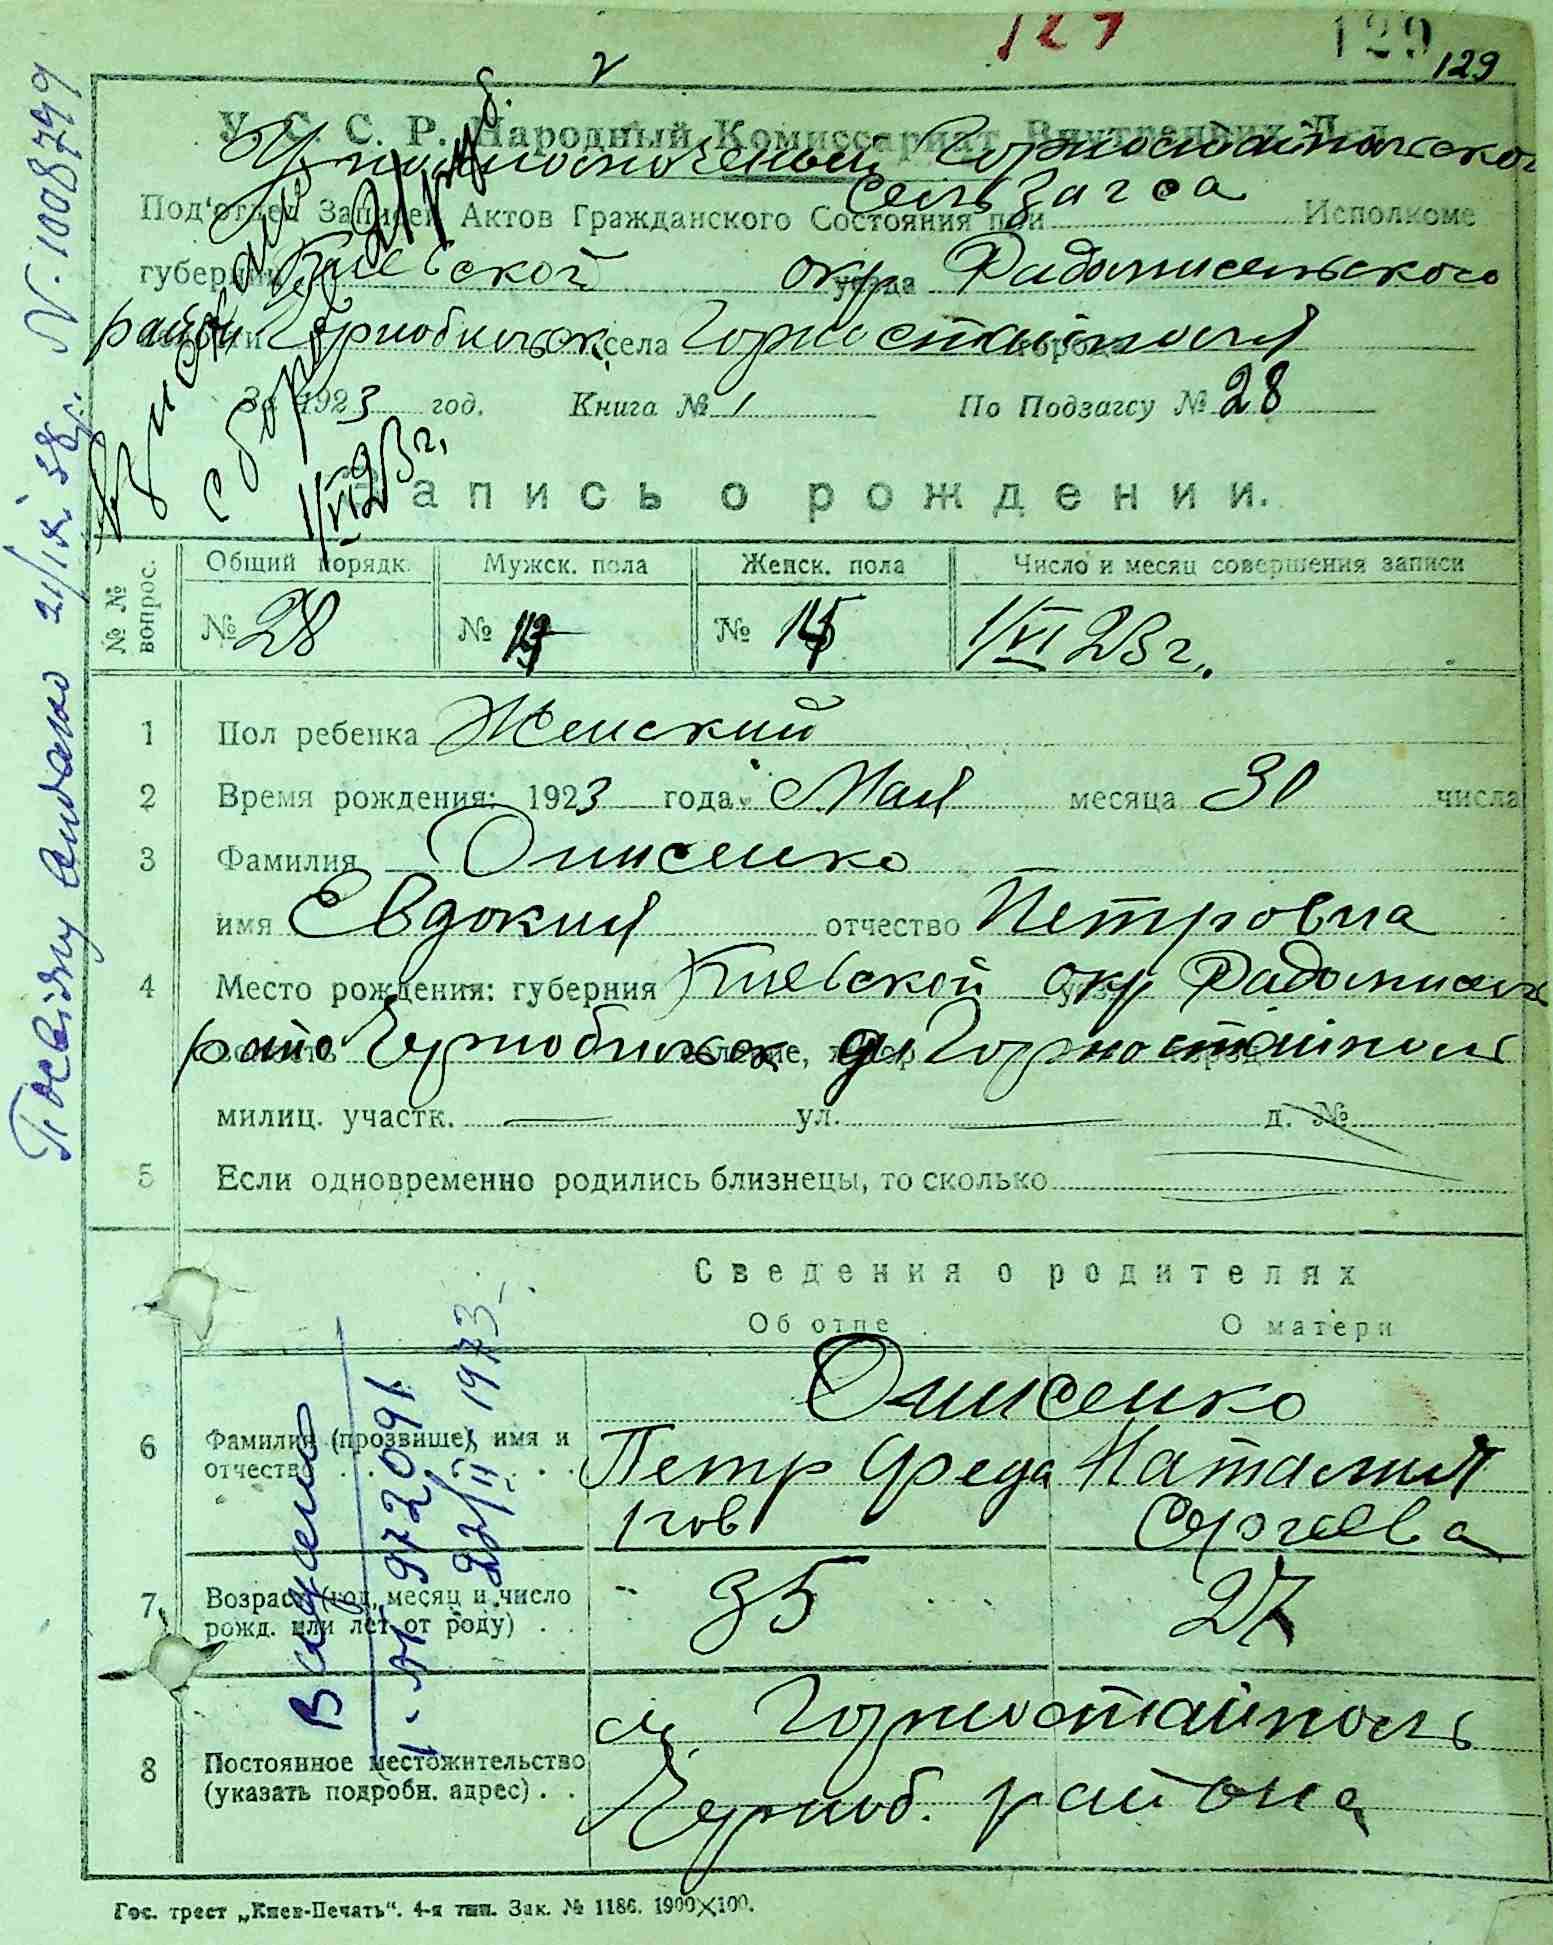 129
129
У. С. С. Р. Народный Комиссариат Внутренних Дел
Уполномоченый Горностайпольского
сельзагса
Под'отдел Записей Актов Гражданского Состояния при Исполкоме
губернии Киевской окр уезда Радомисельского
район Чернобыльск села Горностайполя
За 1923 год. Книга № 1 По Подзагсу № 28
Запись о рождении.
№ № вопрос.
Общий порядк. Мужск. пола Женск. пола Число и месяц совершения записи
№ 28 № № 1/VI 23 г.
1 Пол ребенка Женский
2 Время рождения: 1923 года Мая месяца 30 числа
3 Фамилия Онисенко
имя Евдокия отчество Петровна
4 Место рождения: губерния Киевской окр Радомисельс
райо Чернобыльск Горностайполь
милиц. участк. ул. д. №
5 Если одновременно родились близнецы, то сколько
Сведения о родителях
Об отце О матери
Онисенко
6 Фамилия (прозвище), имя и
отчество
Петр Федо Наталия
ков Сергеева
7 Возраст (год, месяц и число
рожд. или лет от роду)
35 27
м. Горностайполь
8 Постоянное местожительство
(указать подробн. адрес)
Черноб. района
Гос. трест „Киев-Печать“. 4-я тип. Зак. № 1186. 1900×100.
1/VI 23 г.
Посвідку видано 21/IX 38 р. N. 1008799
Видано
I-
№ 972091
22/II 1973